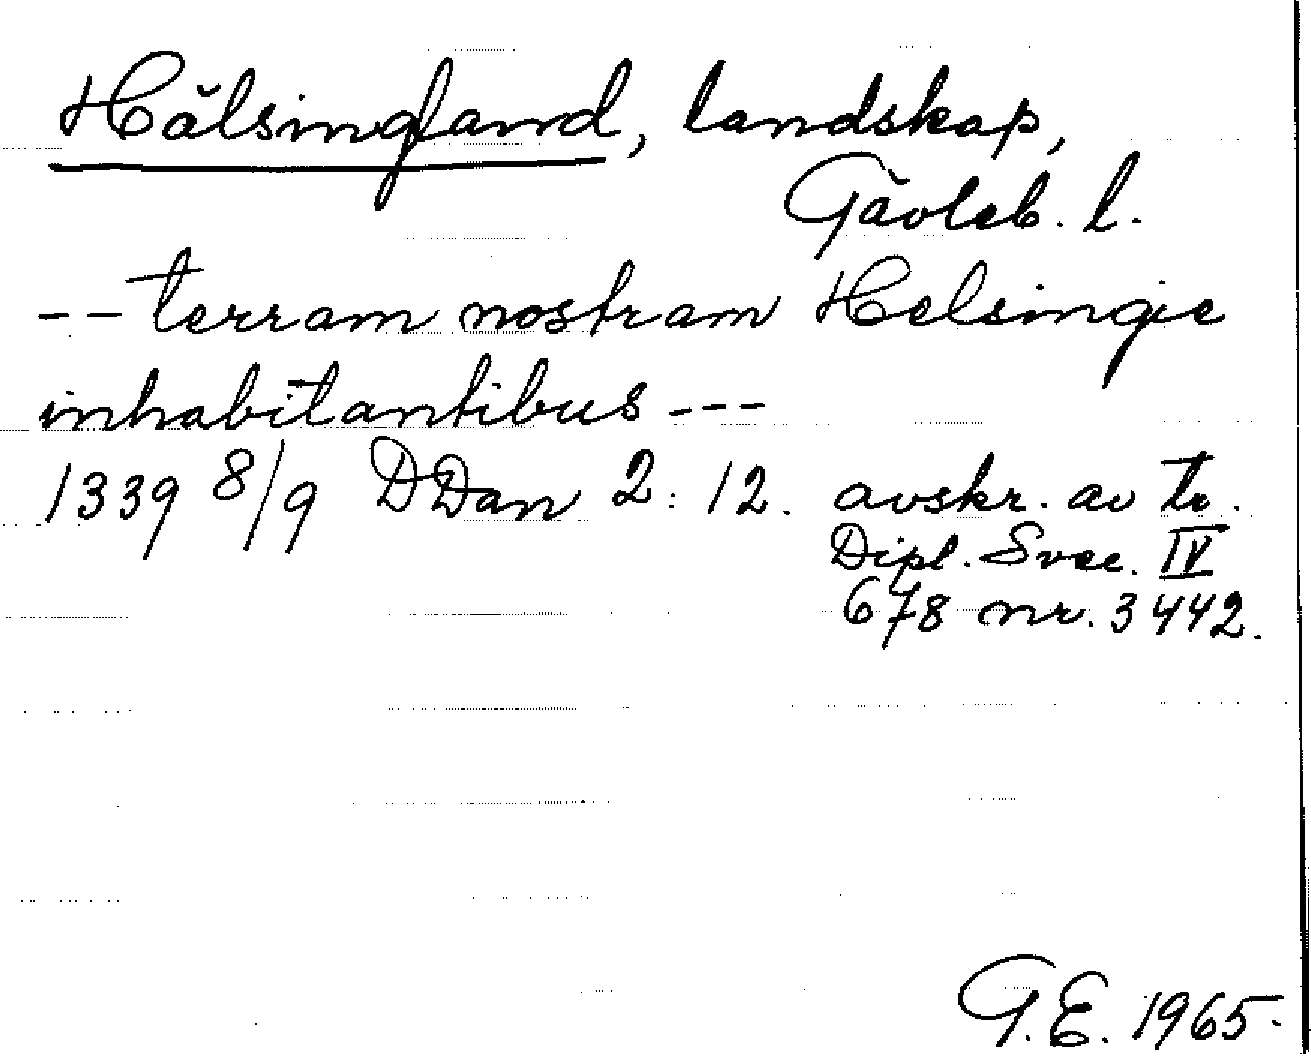 Hälsingland, landskap,
Gävleb. l.
-- terram nostram Helsingie
inhabitantibus ---
1339 8/9 DDan 2:12. avskr. av tr.
Dipl. Svec. IV
678 nr. 3442.
G.E. 1965.